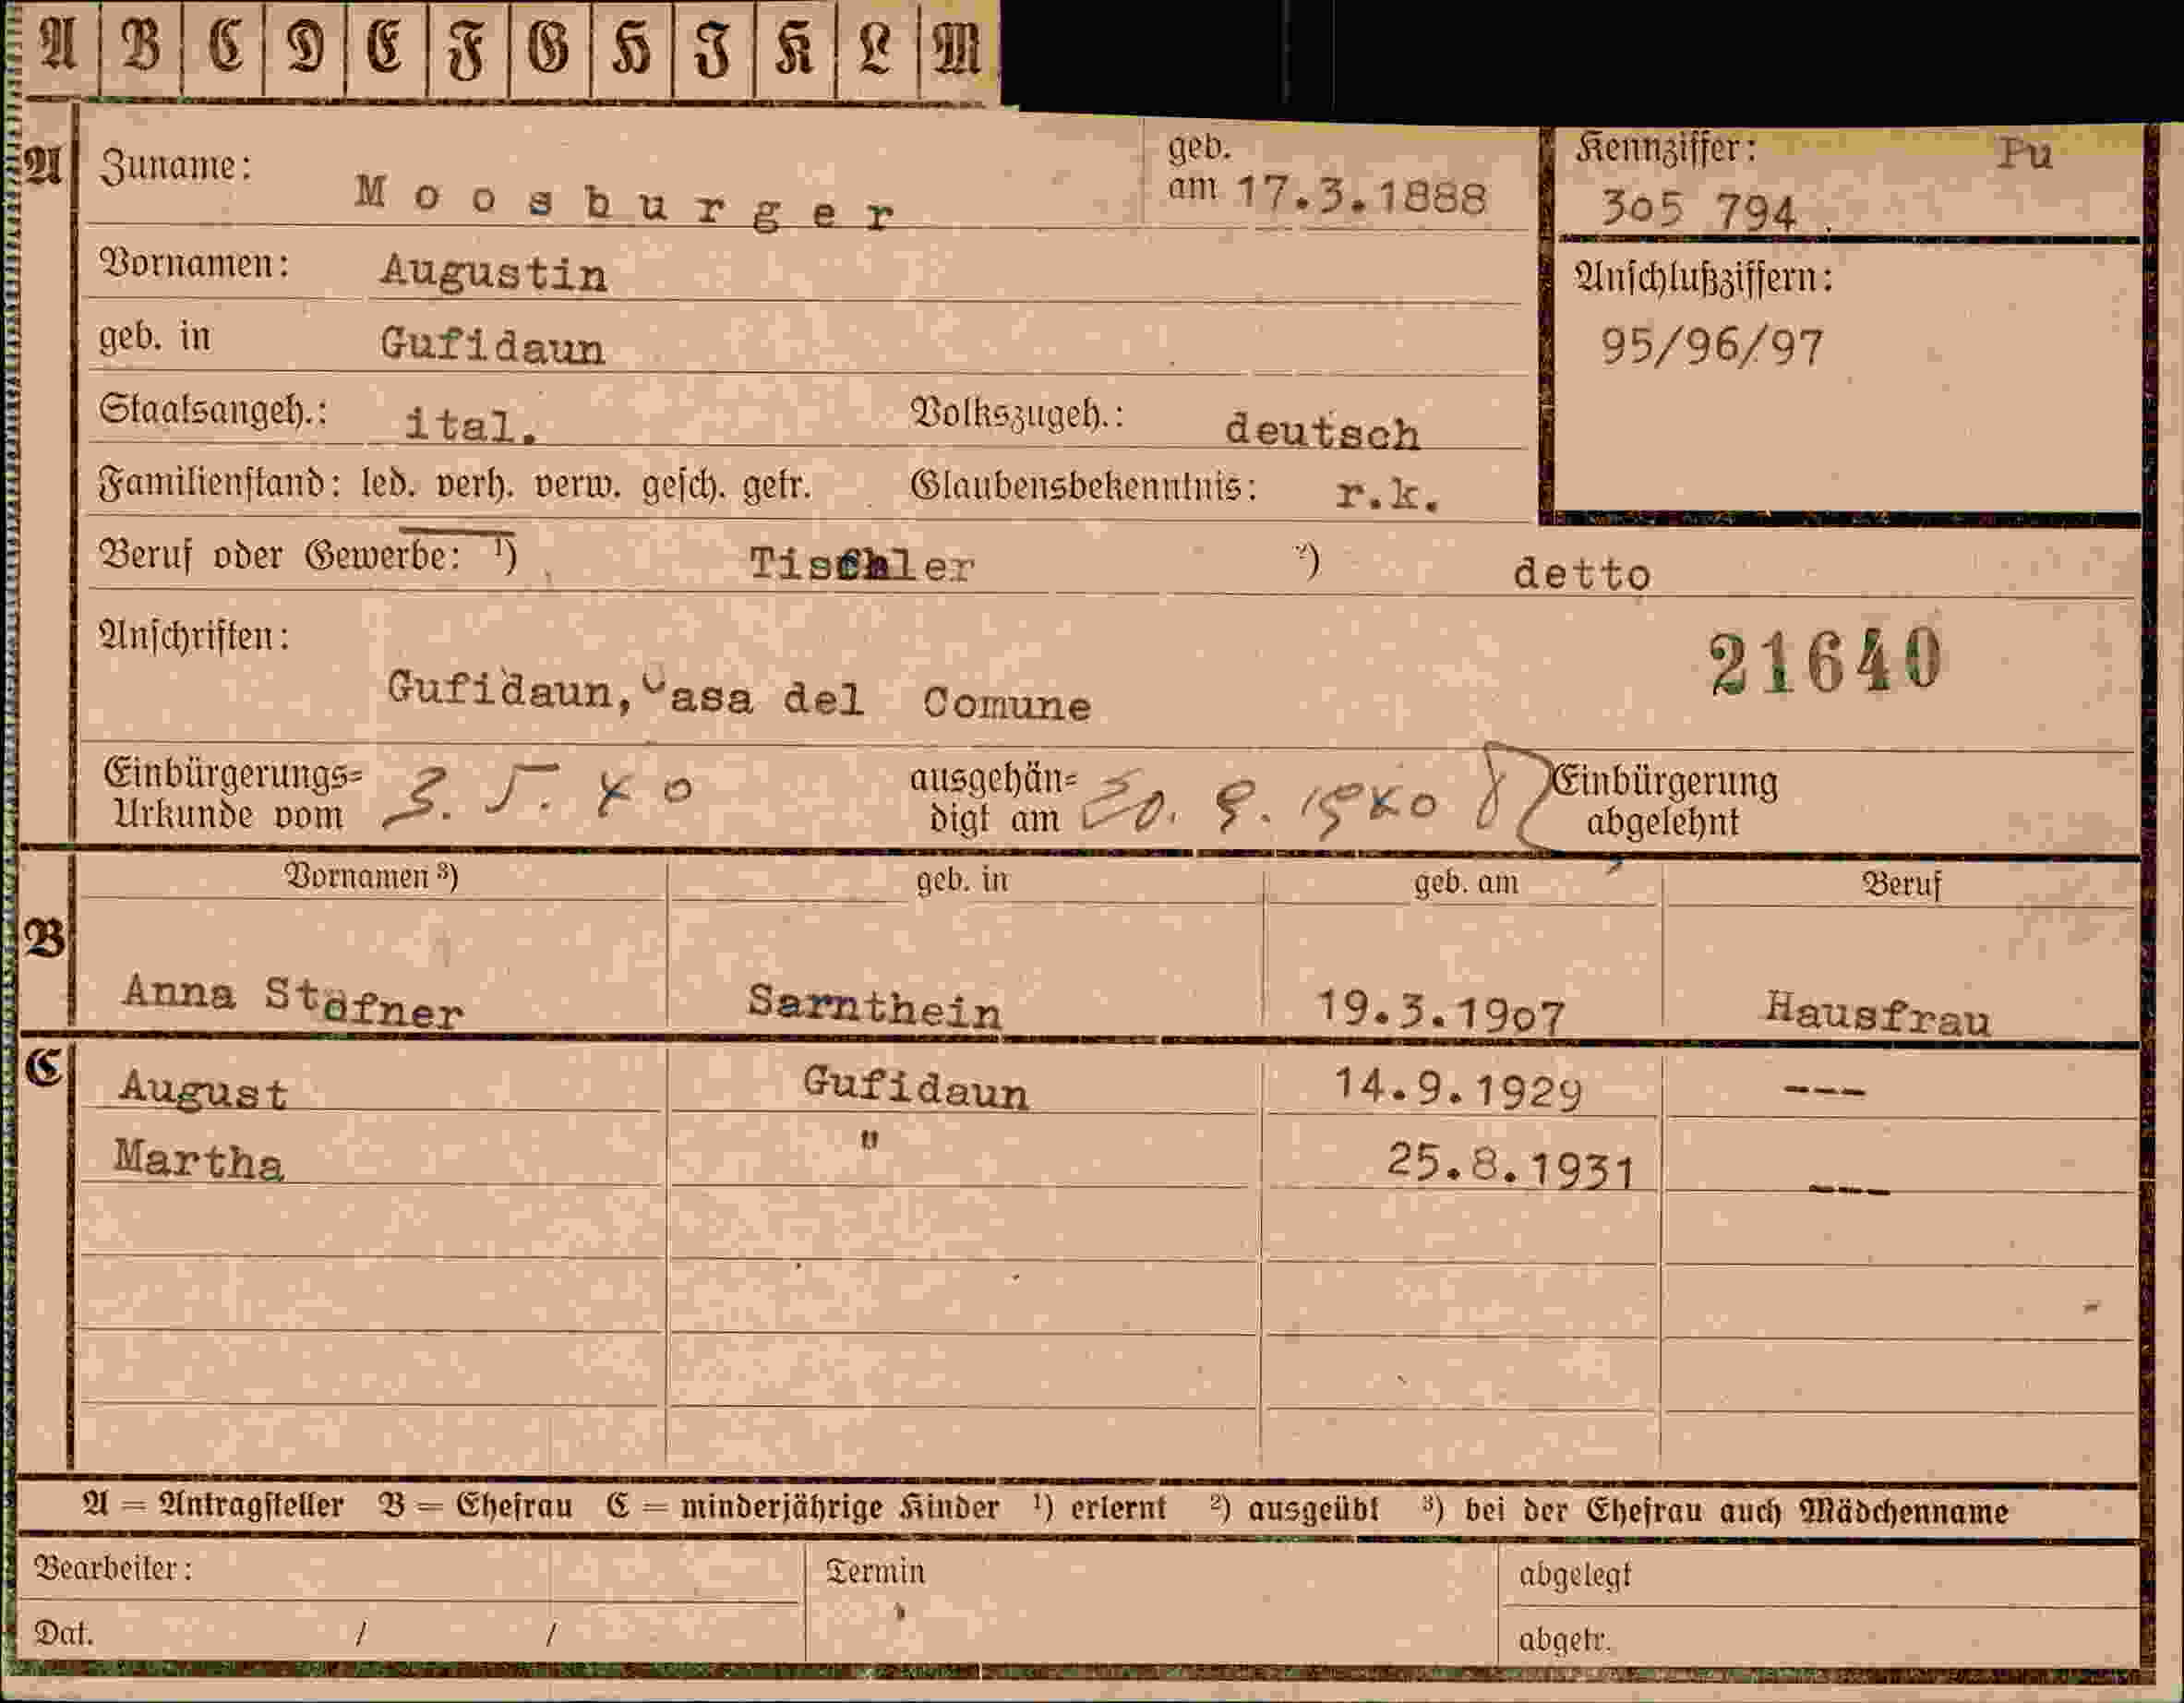 A B C D E F G H J K L M
A Zuname: Moosburger geb. am 17.3.1888 Kennziffer: Pu
305 794
Vornamen: Augustin Anschlußziffern:
geb. in Gufidaun 95/96/97
Staatsangeh.: ital. Volkszugeh.: deutsch
Familienstand: led. verh. verw. gesch. getr. Glaubensbekenntnis: r.k.
Beruf oder Gewerbe: ¹) Tischler ²) detto
Anschriften: 21640
Gufidaun, Casa del Comune
Einbürgerungs= Urkunde vom 3. 5. 40 ausgehän= digt am 30. 9. 1940 Einbürgerung abgelehnt
Vornamen ³) geb. in geb. am Beruf
B Anna Stofner Sarnthein 19.3.1907 Hausfrau
C August Gufidaun 14.9.1929 ---
Martha " 25.8.1931 ---
A = Antragsteller B = Ehefrau C = minderjährige Kinder ¹) erlernt ²) ausgeübt ³) bei der Ehefrau auch Mädchenname
Bearbeiter: Termin abgelegt
Dat. / / abgetr.